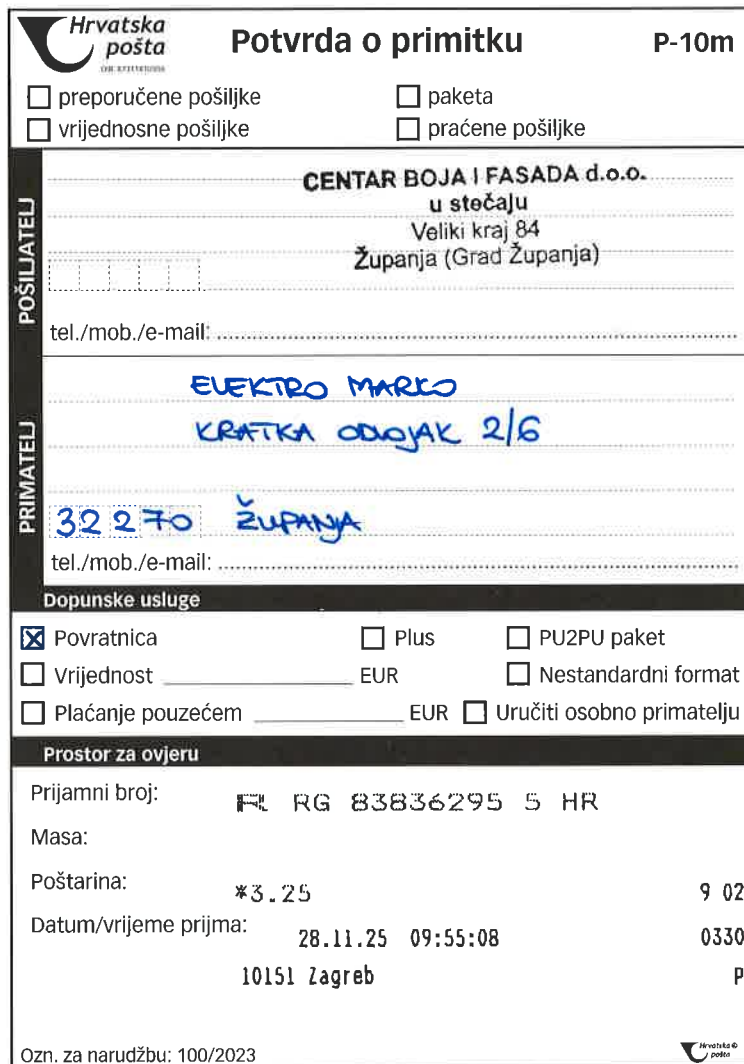 Hrvatska
pošta
Potvrda o primitku
P-10m
preporučene pošiljke
paketa
vrijednosne pošiljke
praćene pošiljke
POŠILJATELJ
CENTAR BOJA I FASADA d.o.o.
u stečaju
Veliki kraj 84
Županja (Grad Županja)
tel./mob./e-mail:
PRIMATELJ
ELEKTRO MARKO
KRATKA ODVOJAK 2/6
32270 ŽUPANJA
tel./mob./e-mail:
Dopunske usluge
Povratnica
Plus
PU2PU paket
Vrijednost EUR
Nestandardni format
Plaćanje pouzećem EUR
Uručiti osobno primatelju
Prostor za ovjeru
Prijamni broj: RL RG 83836295 5 HR
Masa:
Poštarina: *3.25 9 02
Datum/vrijeme prijma: 28.11.25 09:55:08 0330
10151 Zagreb P
Ozn. za narudžbu: 100/2023
Hrvatska
pošta